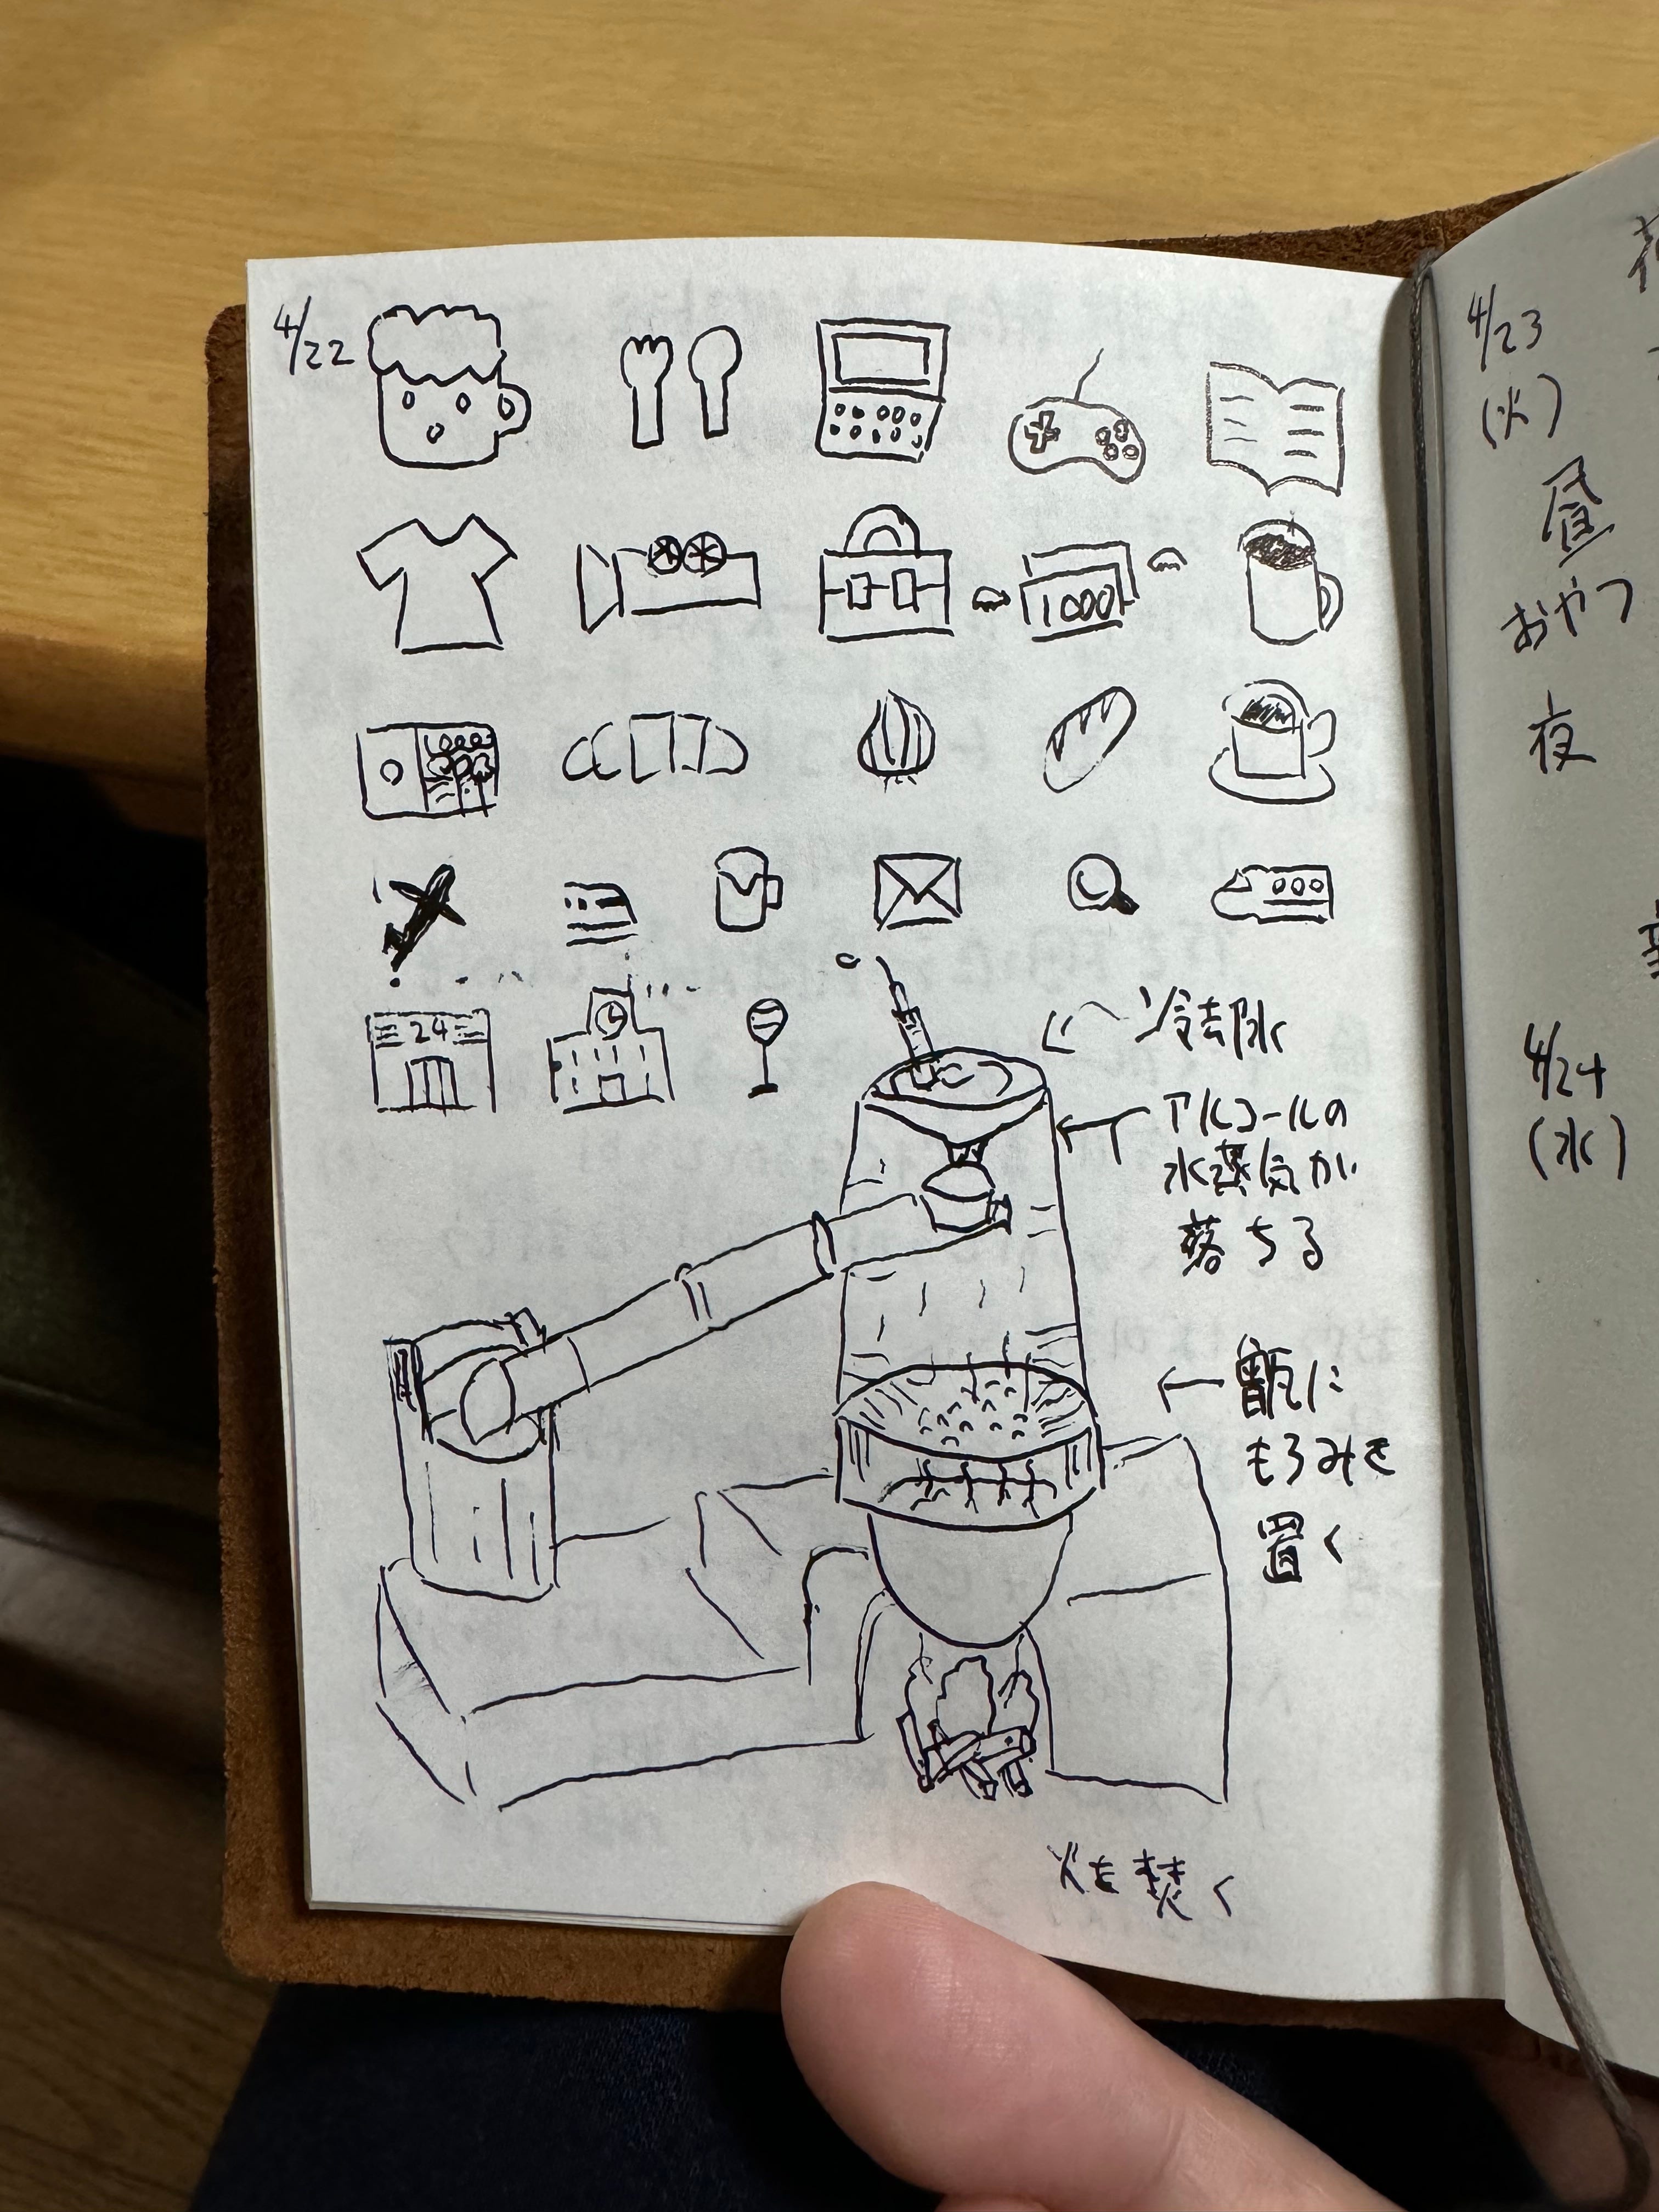 4/22
1000
24
冷却水
アルコールの
水蒸気が
落ちる
甑に
もろみを
置く
火を焚く
4/23
(火)
昼
おやつ
夜
4/24
(水)